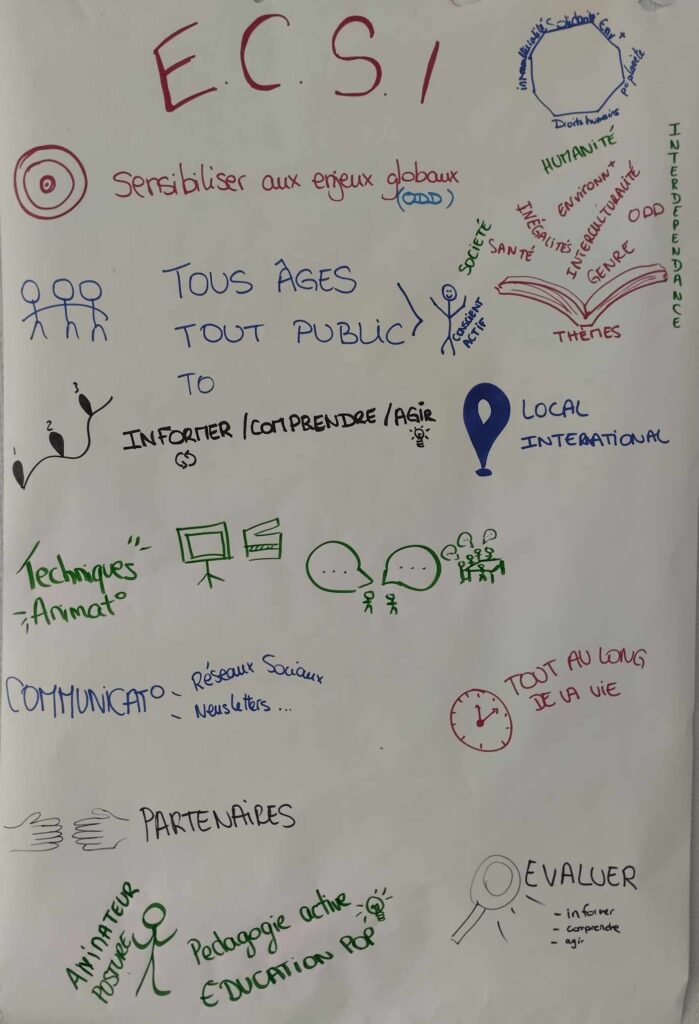 E.C.S.I
interculturalité Solidarité Env+
po planète
Droits humains
Sensibiliser aux enjeux globaux
(ODD)
HUMANITÉ
SOCIETÉ
SANTÉ
INÉGALITÉS
ENVIRONN+
INTERCULTURALITÉ
GENRE
ODD
INTERDÉPENDANCE
THÈMES
TOUS ÂGES
TOUT PUBLIC
TO
CONSCIENT
ACTIF
1
2
3
INFORMER / COMPRENDRE / AGIR
LOCAL
INTERNATIONAL
Techniques
Animat°
... ...
COMMUNICAT°
- Réseaux Sociaux
- Newsletters ...
TOUT AU LONG
DE LA VIE
PARTENAIRES
ANIMATEUR
POSTURE
Pedagogie active
EDUCATION POP
EVALUER
- informer
- comprendre
- agir